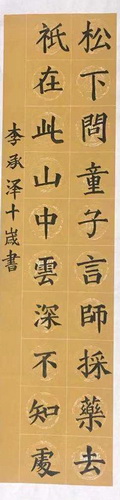 松下問童子言師採藥去
祇在此山中雲深不知處
李承泽十嵗書